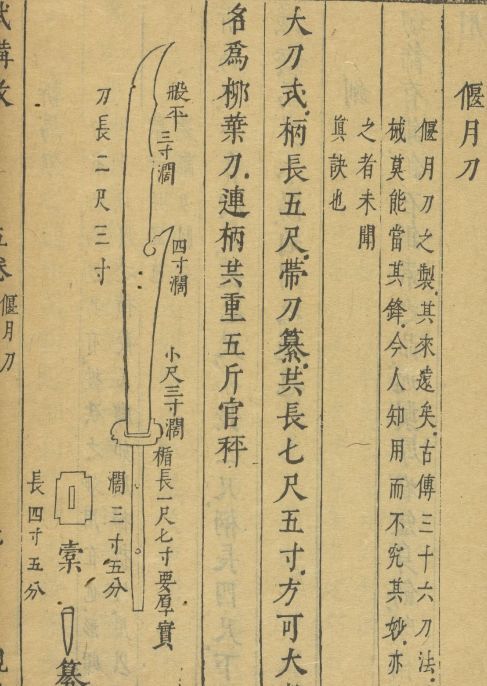 偃月刀
偃月刀之製其來遠矣古傳三十六刀法
械莫能當其鋒今人知用而不究其妙亦
之者未聞
眞訣也
大刀式柄長五尺帶刀纂共長七尺五寸方可大
名爲柳葉刀連柄共重五斤官秤
般平
三寸濶
四寸濶
小尺三寸濶
楯長一尺七寸要厚實
刀長二尺三寸
濶三寸五分
長四寸五分
纂
偃月刀